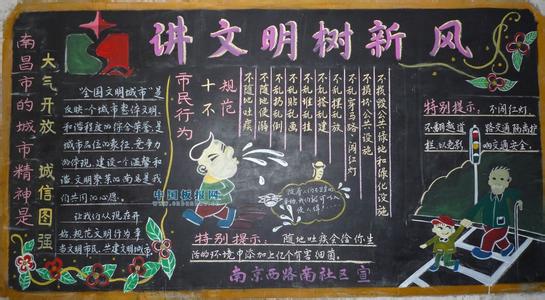 讲文明树新风
南昌市的城市精神是
大气开放 诚信图强
"全国文明城市"是
反映一个城市整体文明
和谐程度的综合荣誉,是
城市居住的素质,竞争力
的体现,建设一个温馨和
谐、文明繁荣的南昌是我
们共同的心愿。
让我们从现在开
始,规范文明行为,争
当文明市民,共建文明城市
市民行为
十不
规范
不随地吐痰
不随地便溺
不乱扔乱倒
不乱贴乱画
不乱堆乱挂
不乱搭乱建
不乱摆乱放
不乱穿马路、闯红灯
不损坏公共设施
不毁坏公共绿地和绿化设施
特别提示: 不闯红灯,
不翻越道路交通隔离护
栏,以免影响交通安全。
中国板报网
特别提示: 随地吐痰会给你生
活的环境中添加上亿个有害细菌
南京西路南社区宣